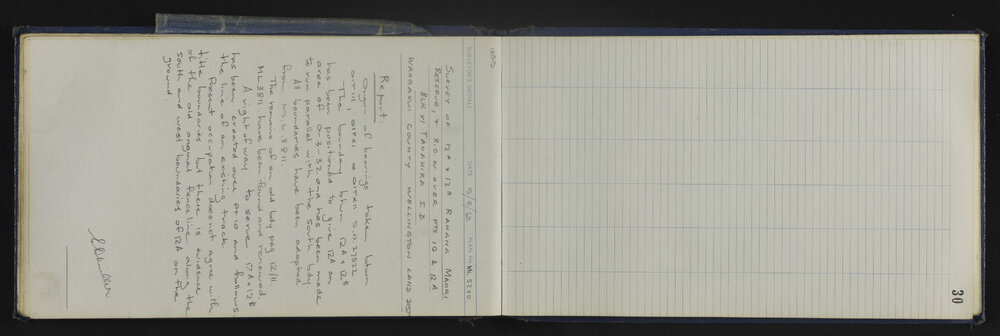 SURVEYOR'S INITIALS DATE 15/9/68 PLAN No. ML 5200
SURVEY OF 12A & 12B RANANA MAORI
RESERVE, & R.O.W. OVER PTS 10 & 12A
BLK VI TAUAKIRA S.D.
WANGANUI COUNTY WELLINGTON LAND DIST
Report:
Origin of bearings taken btwn
OIT III, OIPXI & OITXII S.O. 27522
The boundary btwn 12A & 12B
has been positioned to give 12A an
area of 0-3-32 and has been made
to run parallel with the south bdy
All boundaries have been adopted
from M.L. 3811.
The remains of an old bdy peg 12/11
ML 3811 have been found and renewed
A right of way to serve 12A & 12B
has been created over pt. 10 and follows
the line of an existing track.
Present occupation does not agree with
title boundaries but there is evidence
of the old original fence line along the
south and west boundaries of 12A on the
ground.
30